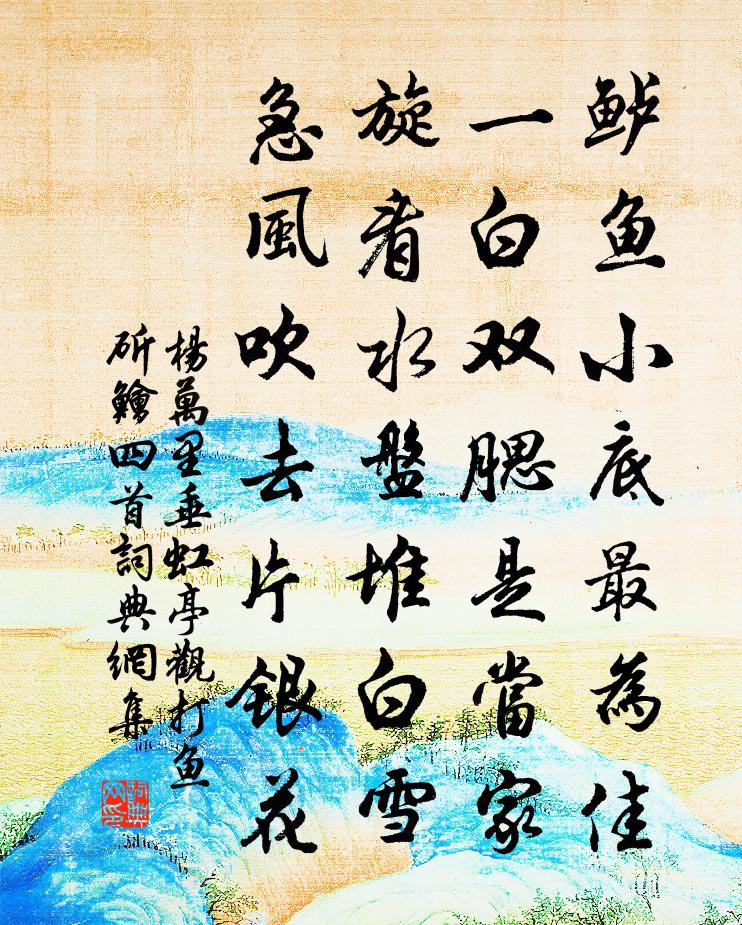 鲈鱼小底最為佳
一白双腮是當家
旋看水盤堆白雪
急風吹去片銀花
楊萬里垂虹亭觀打鱼
斫鱠四首詞典網集